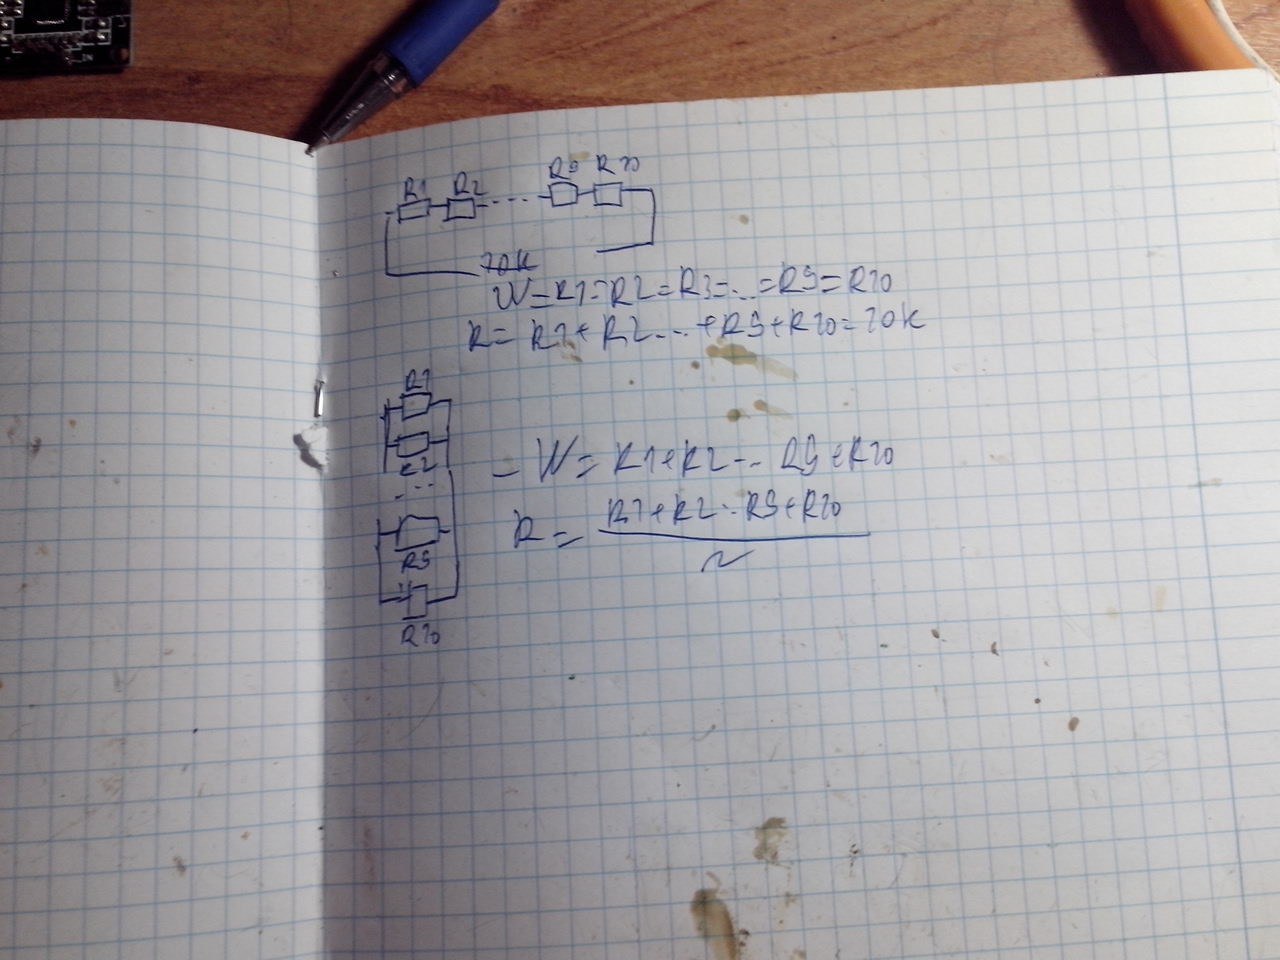 R1 R2 ... R9 R10
10K
W=R1=R2=R3=...=R9=R10
R=R1+R2...+R9+R10=10K
R1
R2
...
R9
R10
- W=R1+R2... R9+R10
R=R1+R2...R9+R10
N